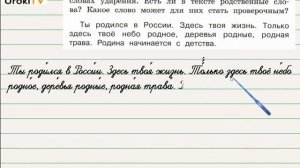 UrokiTV
слова́х ударения. Есть ли в тексте родственные сло-
ва? Какое слово может для них стать проверочным?
Ты родился в России. Здесь твоя жизнь. Только
здесь твоё небо родное, деревья родные, родная
трава. Родина начинается с детства.
Ты роди́лся в Росси́и. Здесь твоя́ жизнь. То́лько здесь твоё не́бо
родно́е, дере́вья родны́е, родна́я трава́.